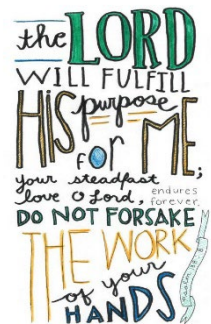 the LORD
WILL FULFILL
HIS purpose
for ME;
your steadfast
love O Lord, endures
forever.
DO NOT FORSAKE
THE WORK
of your
HANDS
psalm 138:8